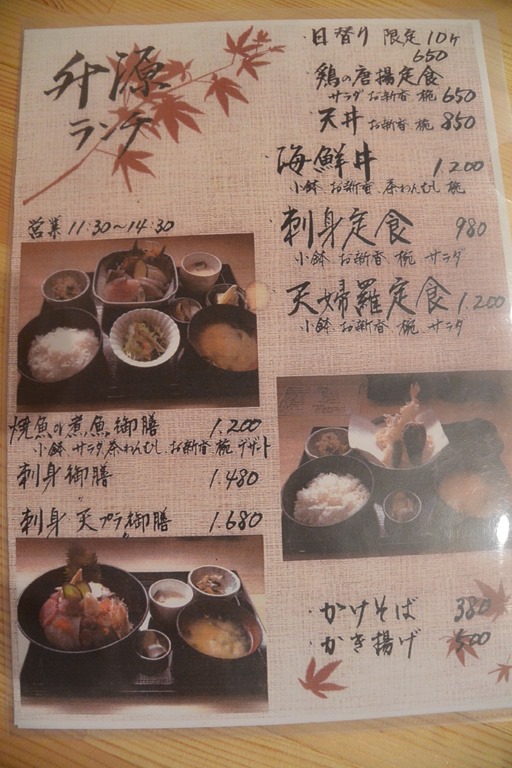 升源
ランチ
営業 11:30～14:30
・日替り 限定10ヶ
650
・鶏の唐揚定食
サラダ お新香 椀 650
・天丼 お新香 椀 850
・海鮮丼 1.200
小鉢 お新香 茶わんむし 椀
・刺身定食 980
小鉢 お新香 椀 サラダ
・天婦羅定食 1.200
小鉢 お新香 椀 サラダ
焼魚or煮魚御膳 1.200
小鉢 サラダ 茶わんむし お新香 椀 デザート
刺身御膳 1.480
〃
刺身 天プラ御膳 1.680
〃
・かけそば 380
・かき揚げ 500